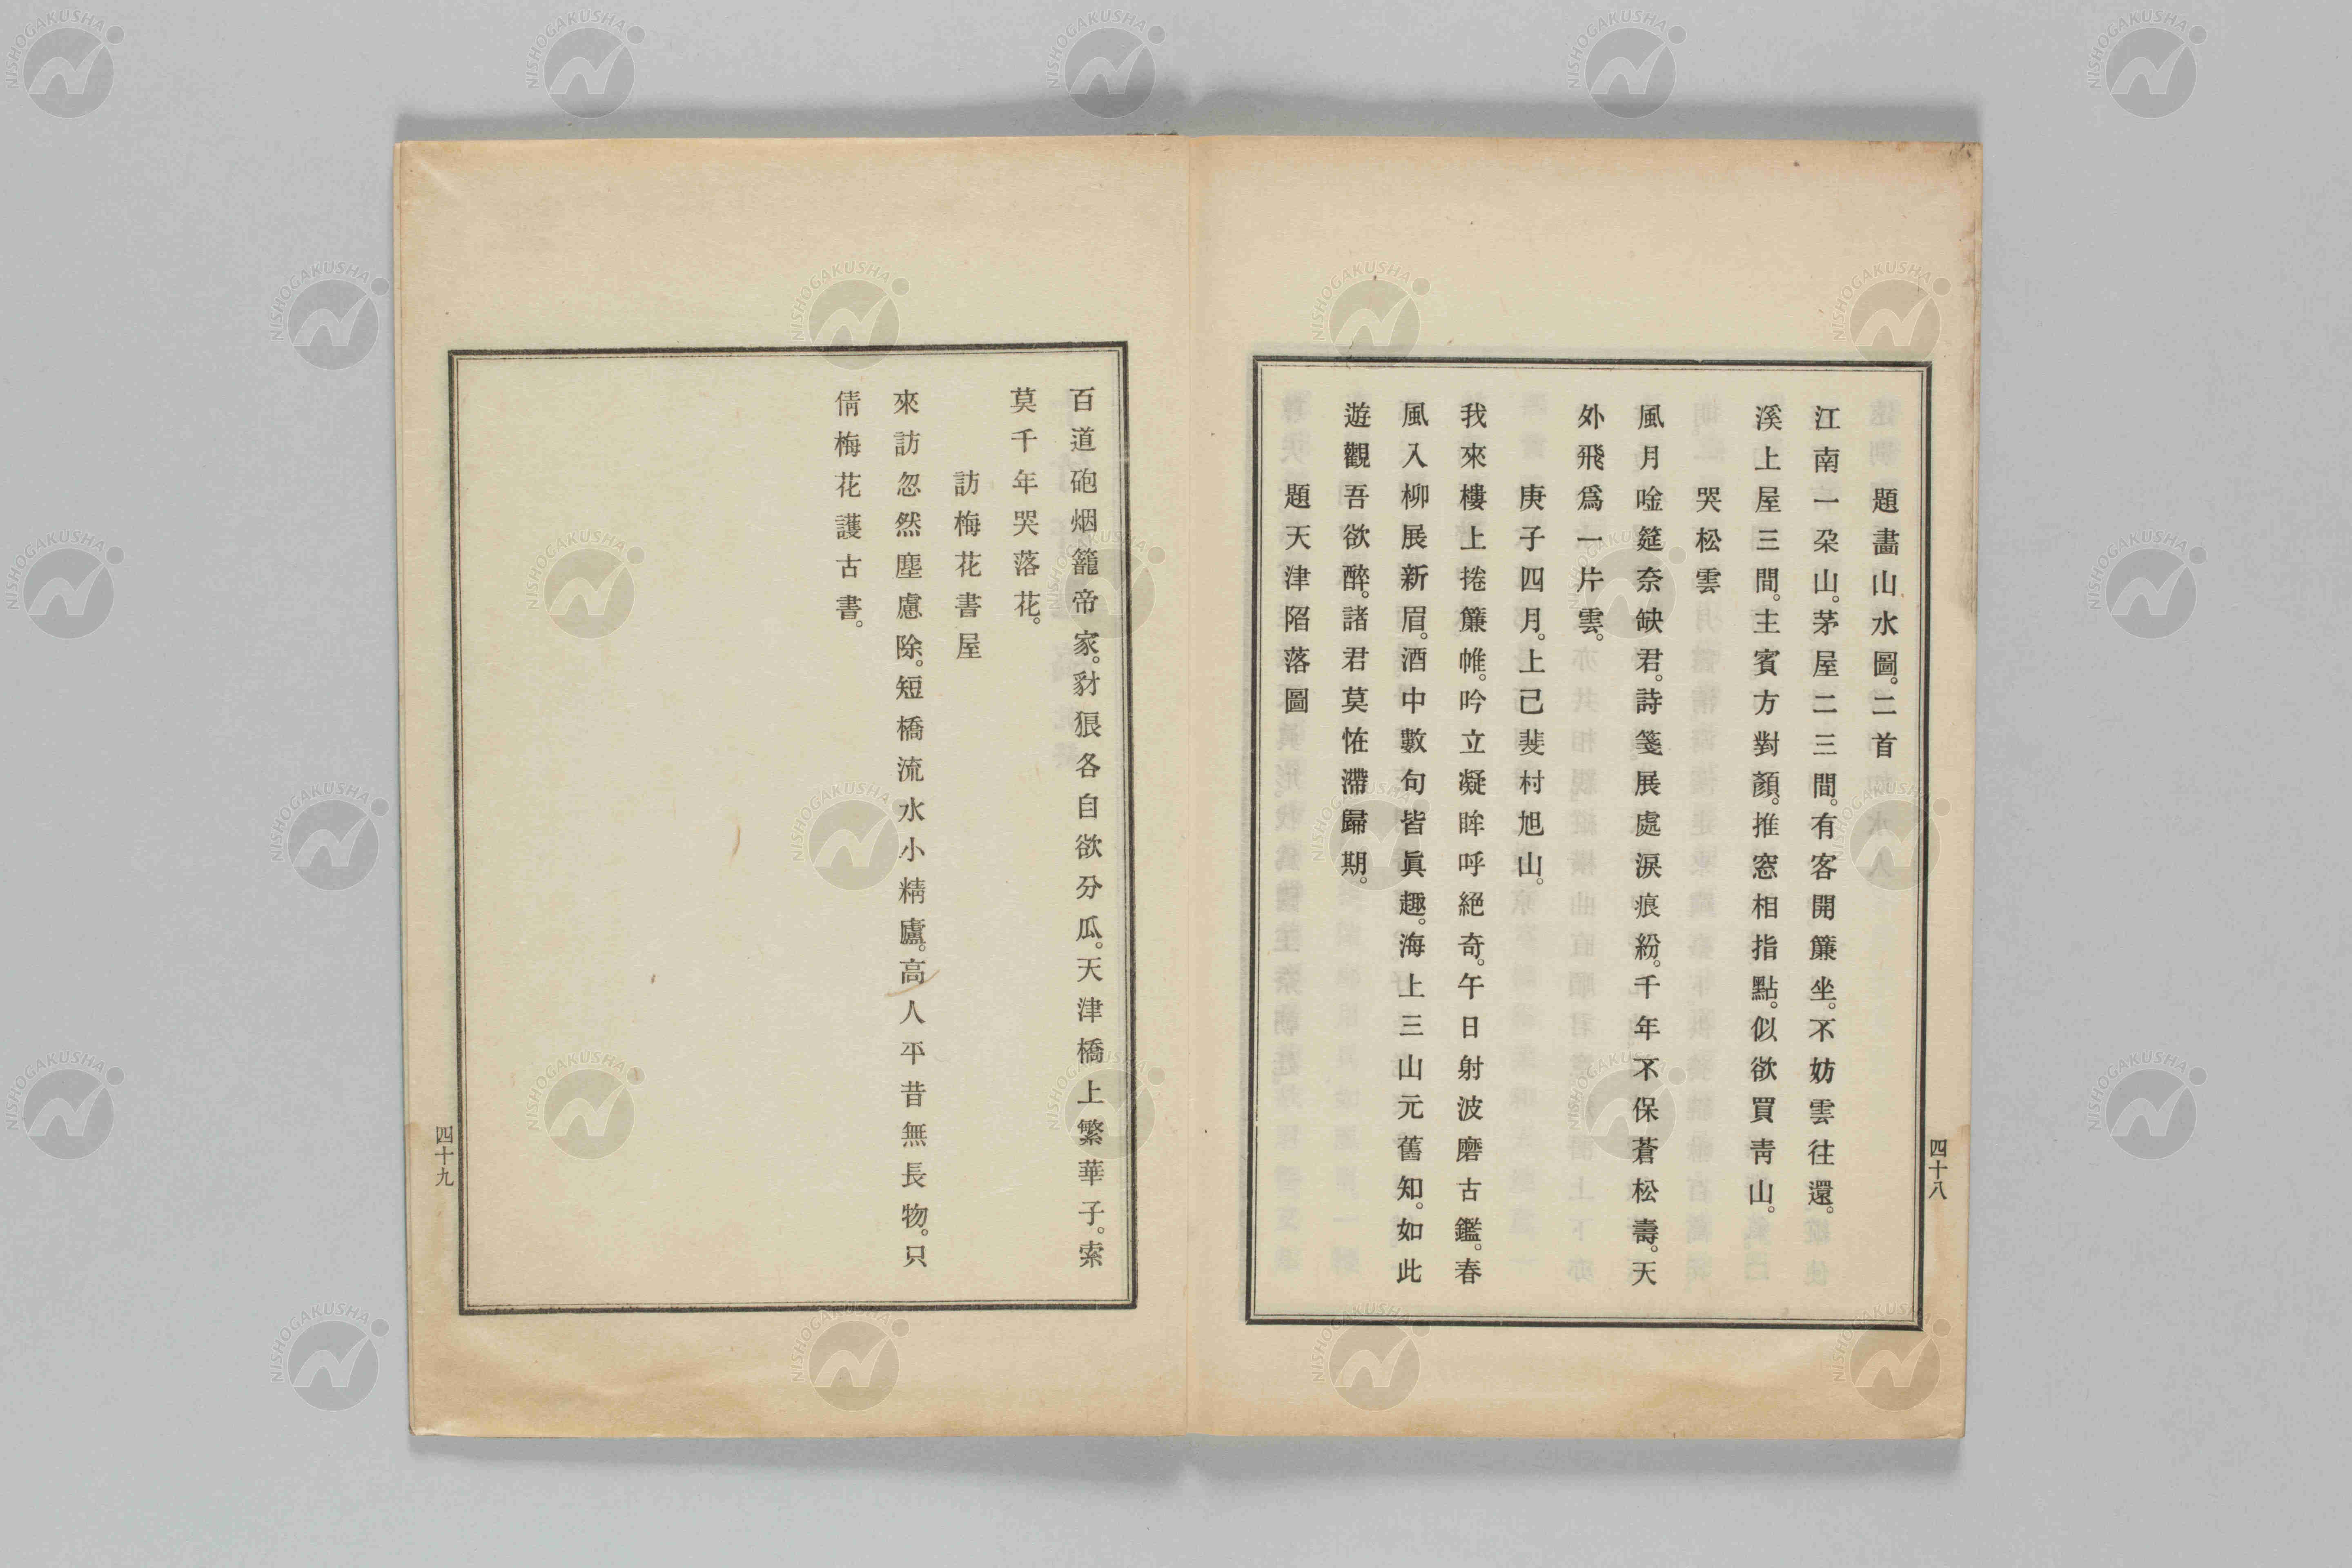 題畵山水圖。二首
江南一朶山。茅屋二三間。有客開簾坐。不妨雲往還。
溪上屋三間。主賓方對顏。推窓相指點。似欲買靑山。
哭松雲
風月唫筵奈缺君。詩箋展處淚痕紛。千年不保蒼松壽。天
外飛爲一片雲。
庚子四月。上已斐村旭山。
我來樓上捲簾帷。吟立凝眸呼絕奇。午日射波磨古鑑。春
風入柳展新眉。酒中數句皆眞趣。海上三山元舊知。如此
遊觀吾欲醉。諸君莫恠滯歸期。
題天津陷落圖
四十八
百道砲烟籠帝家。豺狠各自欲分瓜。天津橋上繁華子。索
莫千年哭落花。
訪梅花書屋
來訪忽然塵慮除。短橋流水小精廬。高人平昔無長物。只
倩梅花護古書。
四十九
NISHOGAKUSHA